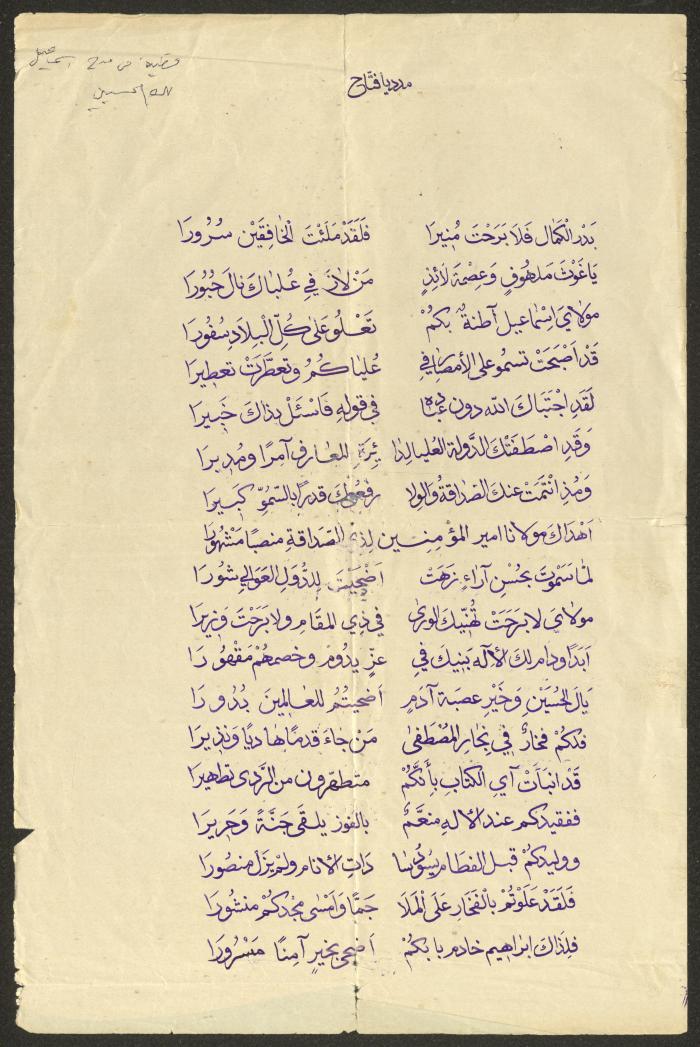 قصيدة في مدح اسماعيل
الحسيني
مدد يا فتاح
بَدْر الْكَمَال فَلَا بَرَحْتَ مُنِيرَا فَلَقَدْ مَلَئْتَ الْخَافِقَيْنِ سُرُورَا
يَا غَوْثَ مَلْهُوفٍ وَعِصْمَةَ لَائِذٍ مَنْ لَاذَ فِي عُلْيَاكَ نَالَ حُبُورَا
مولَايَ اِسْمَاعيل آطنةٌ بكُمْ تَعْلُو عَلى كُلّ الْبِلَادِ سُفُورَا
قَدْ اَصْبَحَتْ تسمو على الأمصار في عُلياكُمُ وتعطَّرَتْ تعطيرَا
لَقَدِ اجْتَبَاكَ اللّه دون عباده في قوله فَاسْئَلْ بذاكَ خَبيرَا
وَقَدِ اصْطَفَتْكَ الدَّولة العُليا لِدَا ئِرَةِ المعَارف آمرًا ومُديرَا
وَمُذِ انْتَمَتْ عنكَ الصَّداقةُ وَالولا رفعُوكَ قدرًا بالسّمُوِّ كَبيرَا
اَهْداكَ مولانا امير المؤمِنِيــن لذي الصّدَاقةِ منصبًا مَشْهُورَا
لمّا سَمَوتَ بحُسْنِ آراءٍ زَهَتْ اَضْحَيْتَ لِلدُّوَلِ العَوالي شُورَا
مولايَ لا بَرحَتْ تُهَنّيكَ الورى في ذي المقَامِ ولا بَرَحْتَ وَزيرَا
اَبَدًا ودام لك الآله بَنيكَ في عزٍّ يدُومُ وخصمهُمْ مَقْهُورَا
يَالَ الحُسَيْنِ وَخَيْرِ عصبَة آدَمٍ اَضحيتُمُ للعَالمينَ بُدُورَا
فلكُمْ فخارٌ في نِجَارِ المُصْطَفى مَنْ جَاءَ قدمًا هَاديًا وَنَذيرَا
قَدْ انبَأَتْ آي الكتَاب بِأَنَّكُمْ متطهّرون من الرَّدى تطهيرَا
ففقيدكم عند الالهِ منعَّمٌ بالفوز يلقَى جَنَّةً وَحَريرَا
ووليدكُمْ قبل الفطام يَسُودُ سَا دَاتِ الانام ولَمْ يَزَلْ منصُورَا
فَلَقَدْ عَلَوْتُمْ بالْفَخَارِ عَلَى الْمَلَا جَمًّا وَاَمْسَى مجْدكُمْ منشُورَا
فلِذَاكَ ابراهيم خادم بابكُمْ اَضْحى بخيرٍ آمِنًا مَسْرُورَا